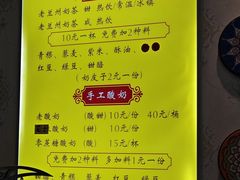 老兰州奶茶 甜 热饮/常温/冰镇
老兰州奶茶 咸 热饮
10元一杯 免费加2种料
青稞、藜麦、紫米、酥油、
红豆、绿豆、甜醅
(奶皮子2元一份)
手工酸奶
老酸奶 (酸甜) 10元/份 40元/桶
酸奶 (甜) 10元/份
零蔗糖酸奶 (酸) 15元/杯
(免费加2种料 多加料1元一份)
青稞 藜麦 红豆 绿豆